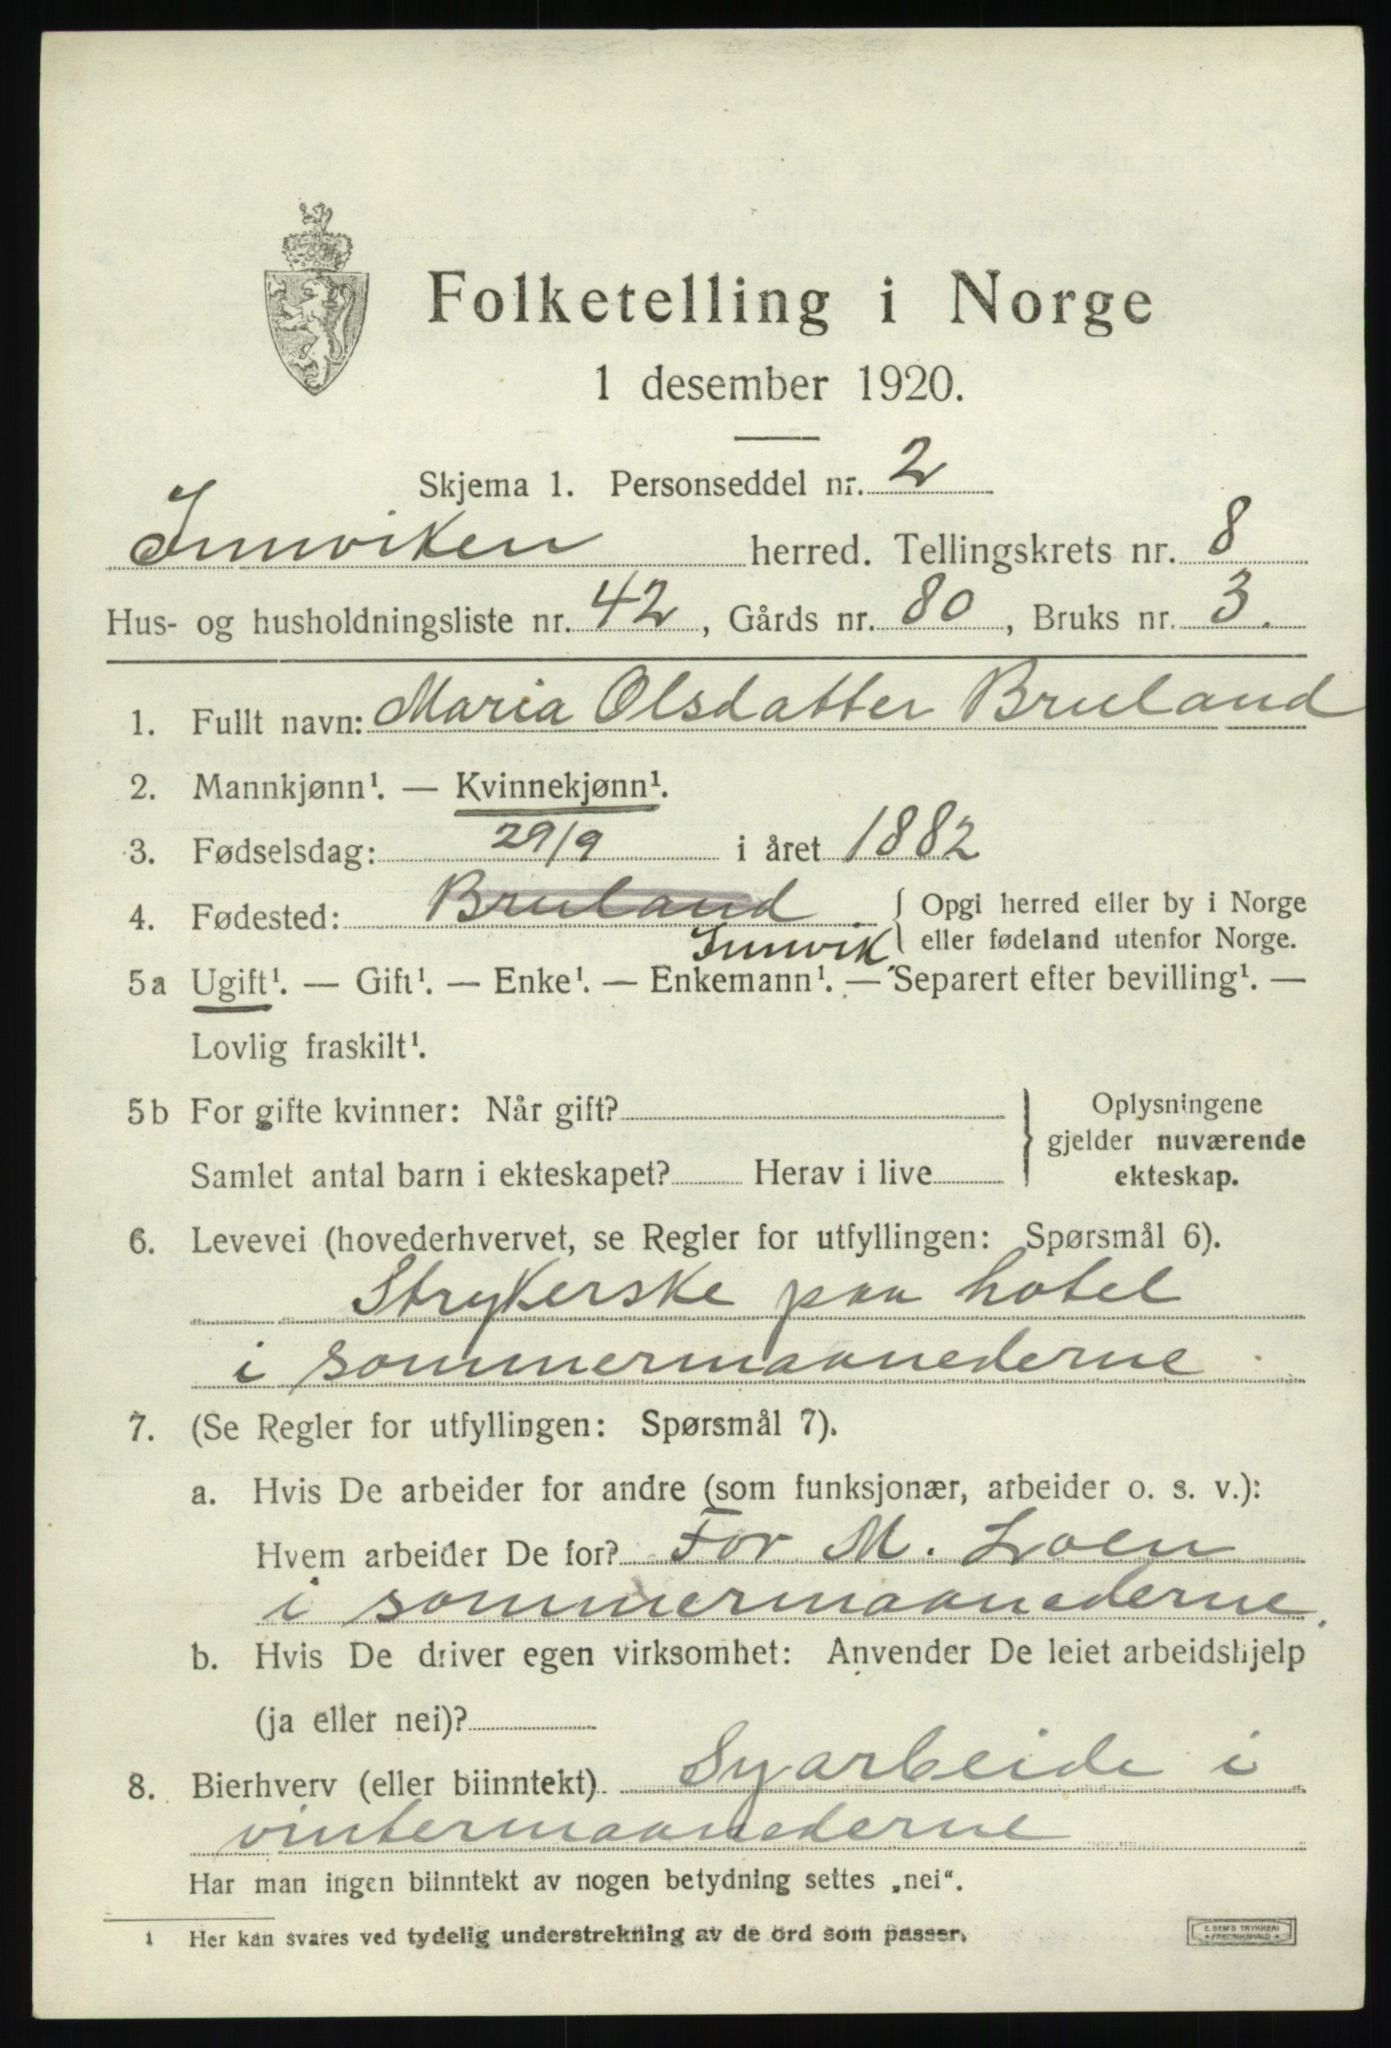 Folketelling i Norge
1 desember 1920.
Skjema 1. Personseddel nr. 2
Innviken herred. Tellingskrets nr. 8
Hus- og husholdningsliste nr. 42, Gårds nr. 80, Bruks nr. 3.
1. Fullt navn: Maria Olsdatter Bruland
2. Mannkjønn¹. — Kvinnekjønn¹.
3. Fødselsdag: 29/9 i året 1882
4. Fødested: Bruland { Opgi herred eller by i Norge
Innvik eller fødeland utenfor Norge.
5a Ugift¹. — Gift¹. — Enke¹. — Enkemann¹. — Separert efter bevilling¹. —
Lovlig fraskilt¹.
5b For gifte kvinner: Når gift? } Oplysningene
gjelder nuværende
Samlet antal barn i ekteskapet? Herav i live ekteskap.
6. Levevei (hovederhvervet, se Regler for utfyllingen: Spørsmål 6).
Strykerske paa hotel
i sommermaanederne
7. (Se Regler for utfyllingen: Spørsmål 7).
a. Hvis De arbeider for andre (som funksjonær, arbeider o. s. v.):
Hvem arbeider De for? For M. Loen
i sommermaanederne.
b. Hvis De driver egen virksomhet: Anvender De leiet arbeidshjelp
(ja eller nei)?
8. Bierhverv (eller biinntekt) Syarbeide i
vintermaanederne
Har man ingen biinntekt av nogen betydning settes „nei“.
1 Her kan svares ved tydelig understrekning av de ord som passer.
E. SEM'S TRYKKERI
FREDRIKSHALD